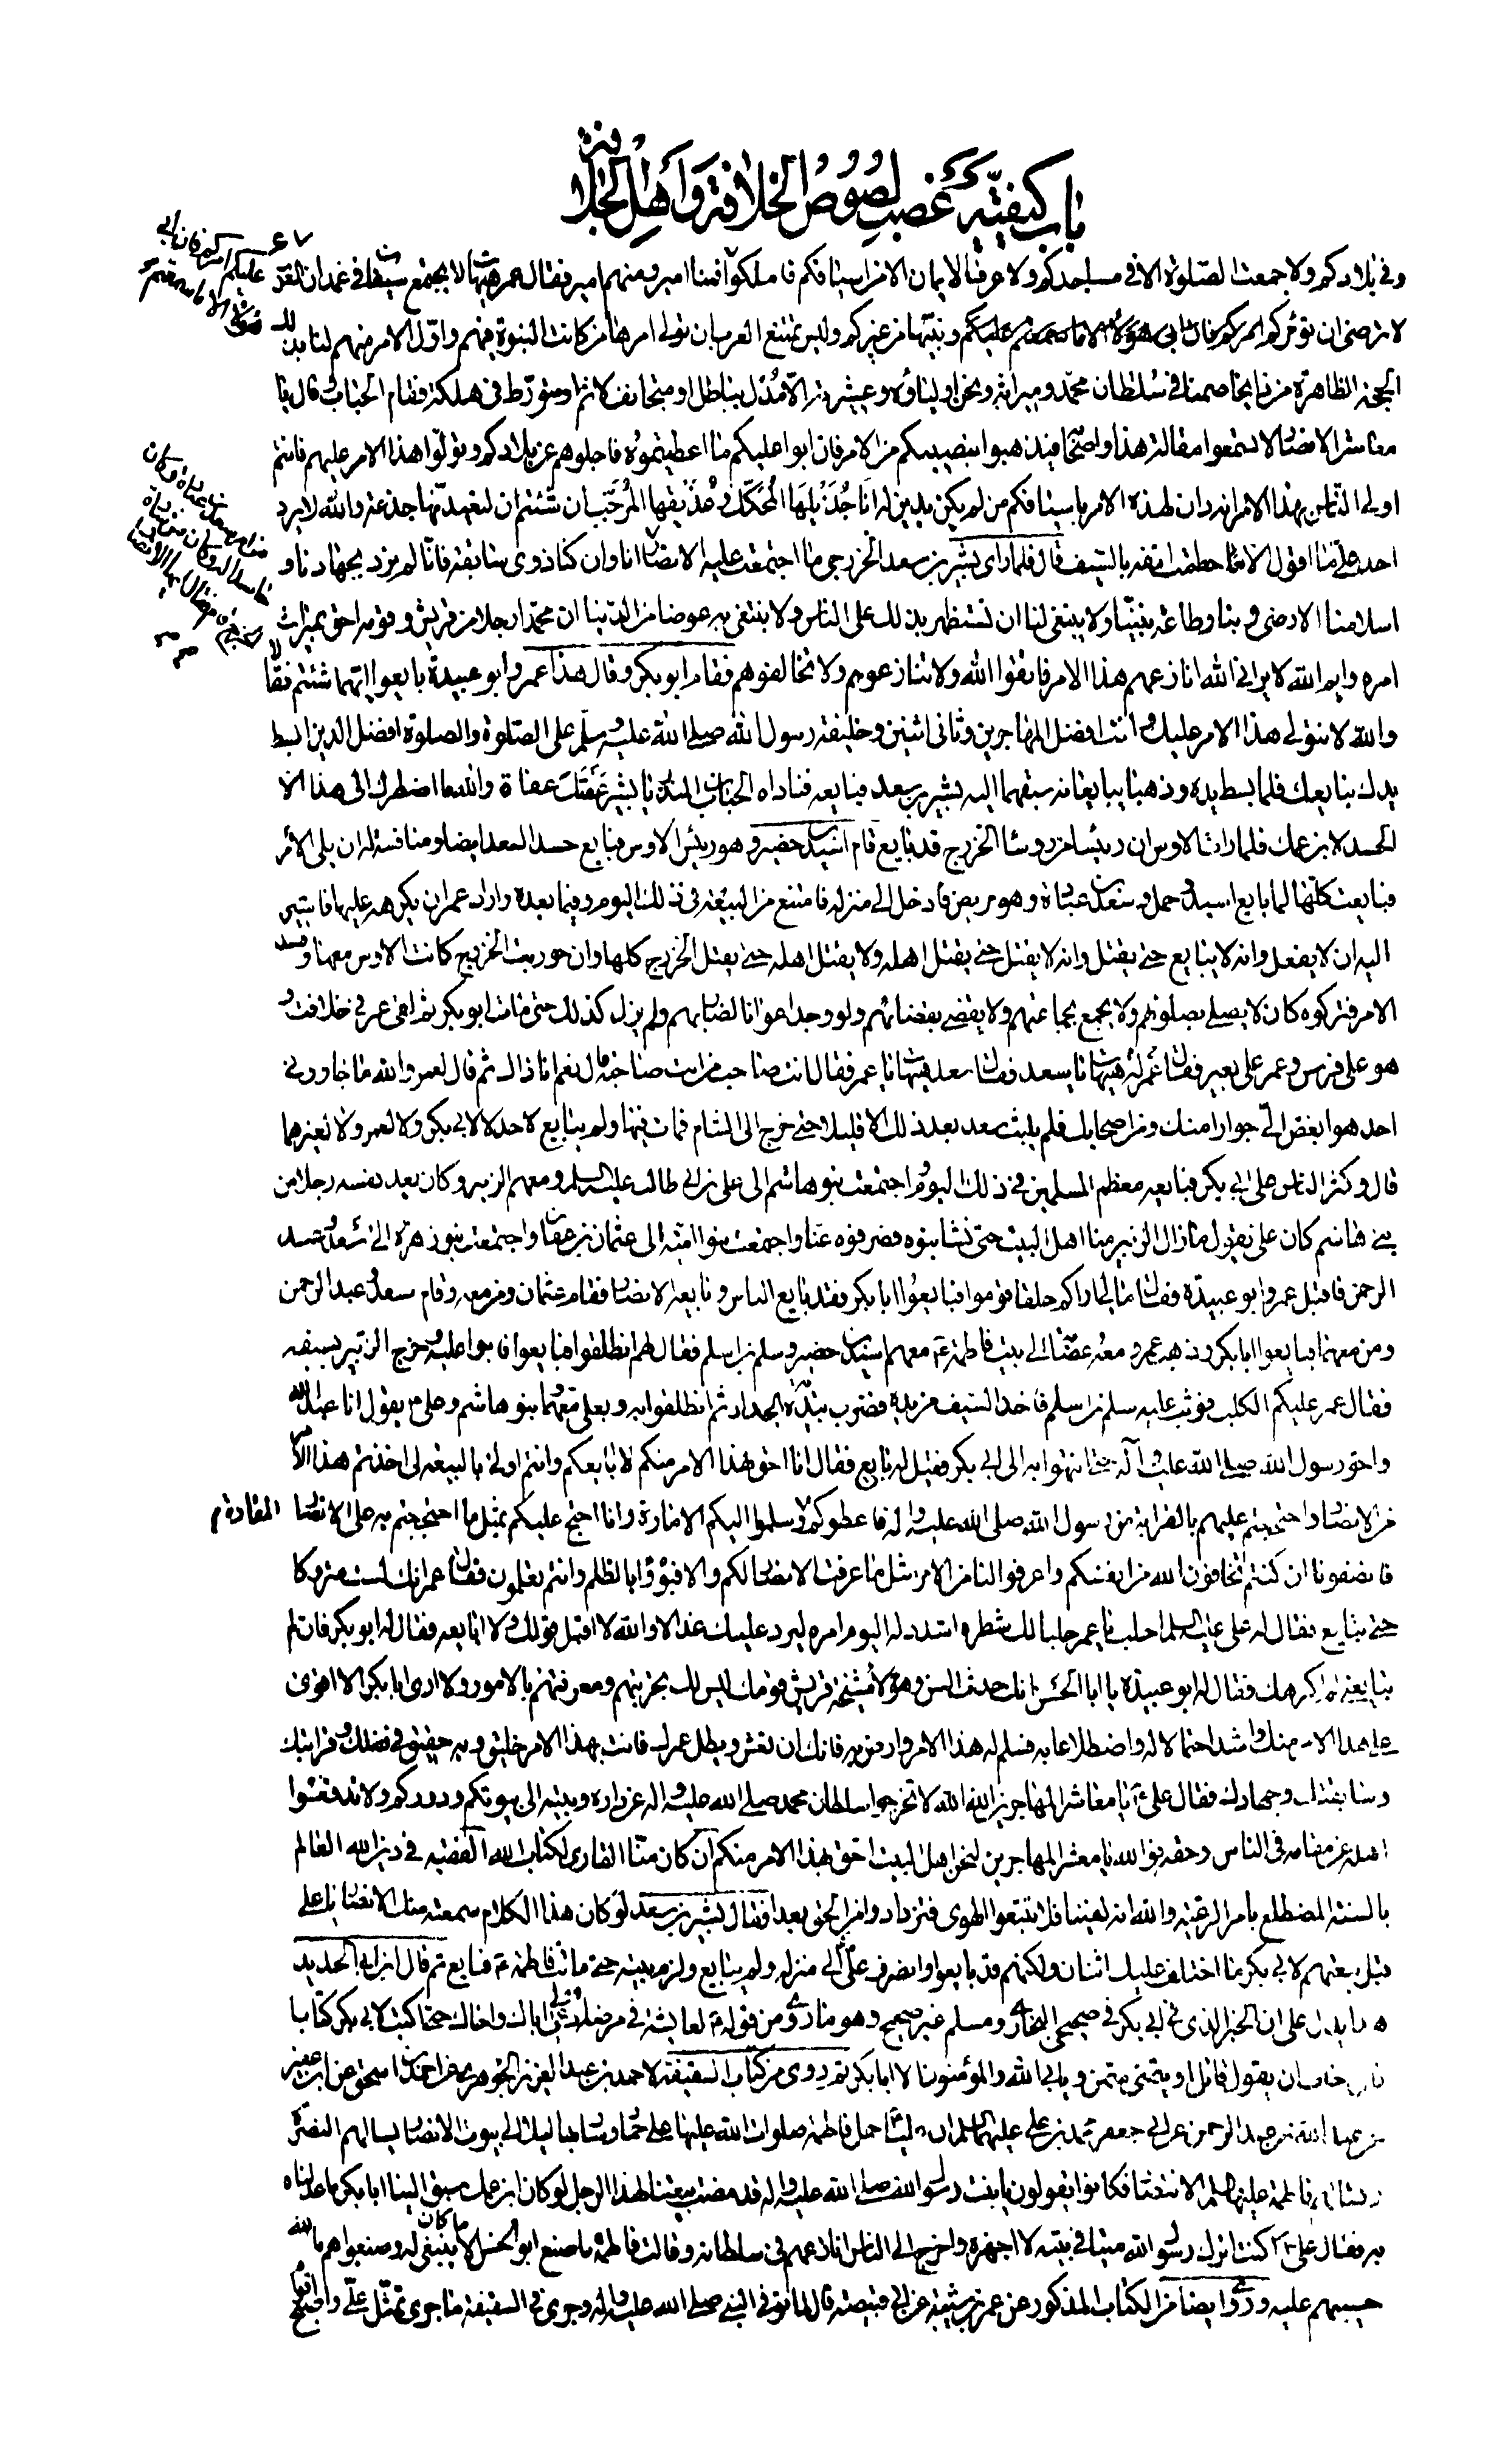 باب كيفية غصب لصوص الخلافة وأهل الجلافة
وفي بلادكم ولا جمعت الصلوة الا في مساجدكم ولا عرف الايمان الا من اسيافكم فاملكوا فمنا امير ومنهم امير فقال عمر هيهات لا يجتمع سيفان في غمد ان العرب
لا ترضى ان تؤمركم وبينها من غيركم وليس تمتنع العرب ان تولى امرها من كانت النبوة فيهم واول الامر منهم لنا بذلك
الحجة الظاهرة من ذا يخاصمنا في سلطان محمد وميراثه ونحن اولياؤه وعشيرته الا مدل بباطل او متجانف لاثم او متورط في هلكة فقام الحباب وقال يا
معاشر الانصار لا تسمعوا مقالة هذا واصحابه فيذهبوا بنصيبكم من الامر فان ابوا عليكم ما اعطيتموه فاجلوهم عن بلادكم وتولوا هذا الامر عليهم فانتم
اولى الناس بهذا الامر انه دان لهذه الامر باسيافكم من لم يكن يدين له انا جذيلها المحكك وعذيقها المرجب ان شئتم لنعيدنها جذعة والله لا يرد
احد علي ما اقول الا حطمت انفه بالسيف قال فلما راى بشير بن سعد الخزرجي ما اجتمعت عليه الانصار انا وان كنا ذوي سابقة فانا لم نرد بجهادنا و
اسلامنا الا رضى ربنا وطاعة نبينا ولا ينبغي لنا ان نستظهر بذلك على الناس ولا نبتغي به عوضا من الدنيا ان محمدا رجل من قريش وقومه احق بميراث
امره وايم الله لا يراني الله انازعهم هذا الامر فاتقوا الله ولا تنازعوهم ولا تخالفوهم فقام ابو بكر وقال هذا عمر وابو عبيدة بايعوا ايهما شئتم فقالا
والله لا نتولى هذا الامر عليك وانت افضل المهاجرين وثاني اثنين وخليفة رسول الله صلى الله عليه وسلم على الصلوة والصلوة افضل الدين ابسط
يدك نبايعك فلما بسط يده وذهبا يبايعانه سبقهما اليه بشير بن سعد فبايعه فناداه الحباب بن المنذر يا بشير عقتك عقاة والله ما اضطرك الى هذا الا
الحسد لابن عمك فلما رات الاوس ان رئيسا من رؤساء الخزرج قد بايع قام اسيد بن حضير وهو رئيس الاوس فبايع حسدا لسعد ايضا ومنافسة له ان يلي الامر
فبايعت كلها لما بايع اسيد وحمل سعد بن عبادة وهو مريض فادخل الى منزله فامتنع من البيعة في ذلك اليوم وفيما بعده واراد عمر ان يكرهه عليها فاشير
اليه ان لا يفعل وانه لا يبايع حتى يقتل وانه لا يقتل حتى يقتل اهله ولا يقتل اهله حتى يقتل الخزرج كلها وان حوربت الخزرج كانت الاوس معها وفسد
الامر فتركوه كان لا يصلي بصلوتهم ولا يجمع بجماعتهم ولا يقضي بقضائهم ولو وجد اعوانا لضاربهم ولم يزل كذلك حتى مات ابو بكر ثم لقي عمر في خلافته و
هو على فرس وعمر على بعير فقال عمر له هيهات يا سعد فقال سعد هيهات يا عمر فقال انت صاحب من انت صاحبه قال نعم انا ذاك ثم قال لعمر والله ما جاورني
احد هو ابغض الي جوارا منك ومن اصحابك فلم يلبث سعد بعد ذلك الا قليلا حتى خرج الى الشام فمات فيها ولم يبايع لاحد لا لابي بكر ولا لعمر ولا لغيرهما
قال وكثر الناس على ابي بكر فبايعه معظم المسلمين في ذلك اليوم واجتمعت بنو هاشم الى علي بن ابي طالب عليه السلام ومعهم الزبير وكان يعد نفسه رجلا من
بني هاشم كان علي يقول ما زال الزبير منا اهل البيت حتى نشا بنوه فصرفوه عنا واجتمعت بنو امية الى عثمان بن عفان واجتمعت بنو زهرة الى سعد وعبد
الرحمن فاقبل عمر وابو عبيدة فقال ما لي اراكم حلقا قوموا فبايعوا ابا بكر فقد بايع الناس وبايعه الانصار فقام عثمان ومن معه وقام سعد وعبد الرحمن
ومن معهما فبايعوا ابا بكر وذهب عمر ومعه عصابة الى بيت فاطمة ع معهم اسيد بن حضير وسلمة بن اسلم فقال لهم انطلقوا فبايعوا فابوا عليه وخرج الزبير بسيفه
فقال عمر عليكم الكلب فوثب عليه سلمة بن اسلم فاخذ السيف من يده فضرب به الجدار ثم انطلقوا به وبعلي ومعهما بنو هاشم وعلي ع يقول انا عبد الله
واخو رسول الله صلى الله عليه وآله حتى انتهوا به الى ابي بكر فقيل له بايع فقال انا احق بهذا الامر منكم لا ابايعكم وانتم اولى بالبيعة لي اخذتم هذا الامر
من الانصار واحتججتم عليهم بالقرابة من رسول الله صلى الله عليه وآله فاعطوكم المقادة وسلموا اليكم الامارة وانا احتج عليكم بمثل ما احتججتم به على الانصار
فانصفونا ان كنتم تخافون الله من انفسكم واعرفوا لنا من الامر مثل ما عرفت الانصار لكم والا فبوؤا بالظلم وانتم تعلمون فقال عمر انك لست متروكا
حتى تبايع فقال له علي عليه السلام احلب يا عمر حلبا لك شطره اشدد له اليوم امره ليرد عليك غدا لا والله لا اقبل قولك ولا ابايعه فقال له ابو بكر فان لم
تبايعني لم اكرهك فقال له ابو عبيدة يا ابا الحسن انك حدث السن وهؤلاء مشيخة قريش قومك ليس لك تجربتهم ومعرفتهم بالامور ولا ارى ابا بكر الا اقوى
على هذا الامر منك واشد احتمالا له واضطلاعا به فسلم له هذا الامر وارض به فانك ان تعش ويطل عمرك فانت بهذا الامر خليق وبه حقيق في فضلك وقرابتك
وسابقتك وجهادك فقال علي ع يا معاشر المهاجرين الله الله لا تخرجوا سلطان محمد صلى الله عليه وآله عن داره وبيته الى بيوتكم ودوركم ولا تدفعوا
اهله عن مقامه في الناس وحقه فوالله يا معشر المهاجرين لنحن اهل البيت احق بهذا الامر منكم ان كان منا القارئ لكتاب الله الفقيه في دين الله العالم
بالسنة المضطلع بامر الرعية والله انه لفينا فلا تتبعوا الهوى فتزدادوا من الحق بعدا فقال بشير بن سعد لو كان هذا الكلام سمعته منك الانصار يا علي
قبل بيعتهم لابي بكر ما اختلف عليك اثنان ولكنهم قد بايعوا وانصرف علي الى منزله ولم يبايع ولزم بيته حتى ماتت فاطمة ع فبايع ثم قال ابن ابي الحديد
هذا يدل على ان الخبر الذي في ابي بكر في صحيحي البخاري ومسلم غير صحيح وهو ما روي من قوله ع لعايشة في مرضه ادعي لي اباك واخاك حتى اكتب لابي بكر كتابا
فاني اخاف ان يقول قائل او يتمنى متمن ويابى الله والمؤمنون الا ابا بكر ثم روى من كتاب السقيفة لاحمد بن عبد العزيز الجوهري عن احمد بن اسحق عن ابن عفير
عن ابي جعفر محمد بن علي عليهما السلام ان عليا حمل فاطمة صلوات الله عليها على حمار وسار بها ليلا الى بيوت الانصار يسالهم النصرة
وتسالهم فاطمة عليها السلام الانتصار له فكانوا يقولون يا بنت رسول الله صلى الله عليه وآله قد مضت بيعتنا لهذا الرجل لو كان ابن عمك سبق الينا ابا بكر ما عدلناه
به فقال علي ع اكنت اترك رسول الله ميتا في بيته لا اجهزه واخرج الى الناس انازعهم في سلطانه وقالت فاطمة ما صنع ابو الحسن الا ما كان ينبغي له وصنعوا هم ما الله
حسيبهم عليه وروى ايضا من الكتاب المذكور عن عمر بن شبة عن ابي قبيصة قال لما توفي النبي صلى الله عليه وآله وجرى في السقيفة ما جرى تمثل علي